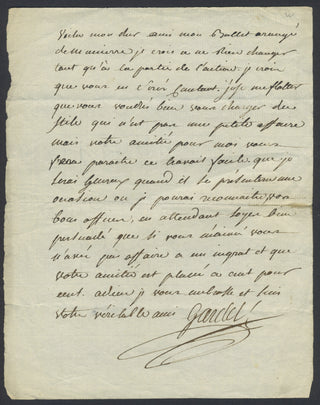 Voila mon cher ami mon Ballet arrangé
de maniere je crois a ne rien changer
tant qu'à la partie de l'action, je crois
que vous en serés content. j'ose me flatter
que vous voudrés bien vous charger du
stile qui n'est pas une petite affaire
mais votre amitié pour moi vous
fera paraitre ce travail facile que je
serai heureux quand il se présentera une
occasion ou je pourai reconnaitre vos
bons offices, en attendant soyez bien
persuadé que si vous m'aimé vous
n'avez pas affaire a un ingrat et que
votre amitié est placée a cent pour
cent. adieu je vous embrasse et suis
votre véritable ami Gardel